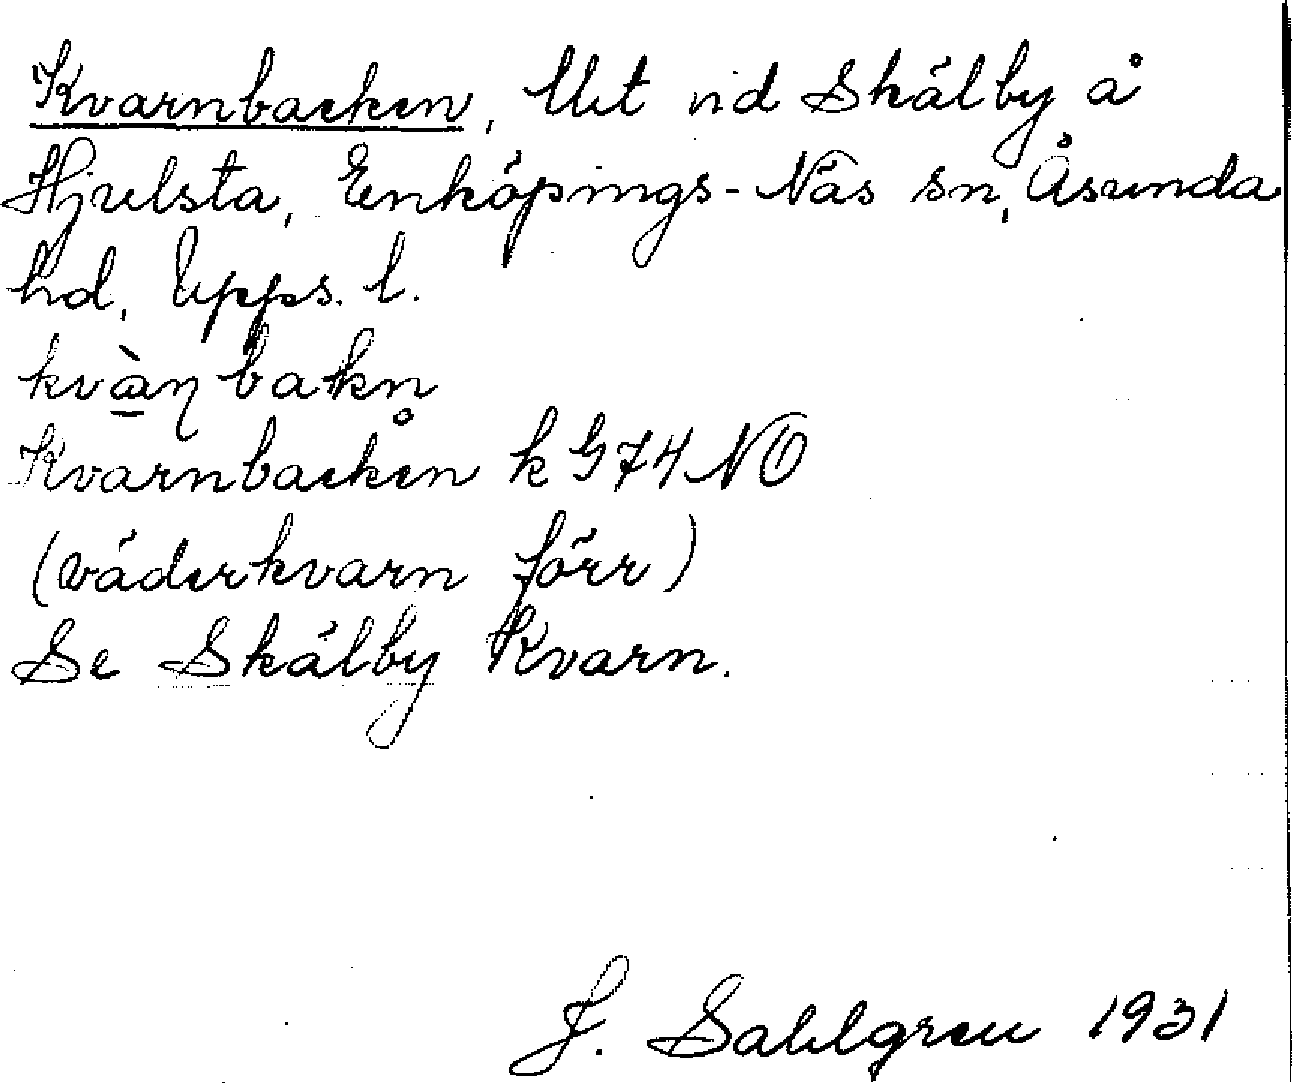 Kvarnbacken, Utet vid Skälby å
Hjulsta, Enköpings-Näs sn, Åsunda
hd, Upps. l.
kvàɳbakn̥
Kvarnbacken k G74 NO
(väderkvarn förr)
Se Skälby Kvarn.
J. Sahlgren 1931